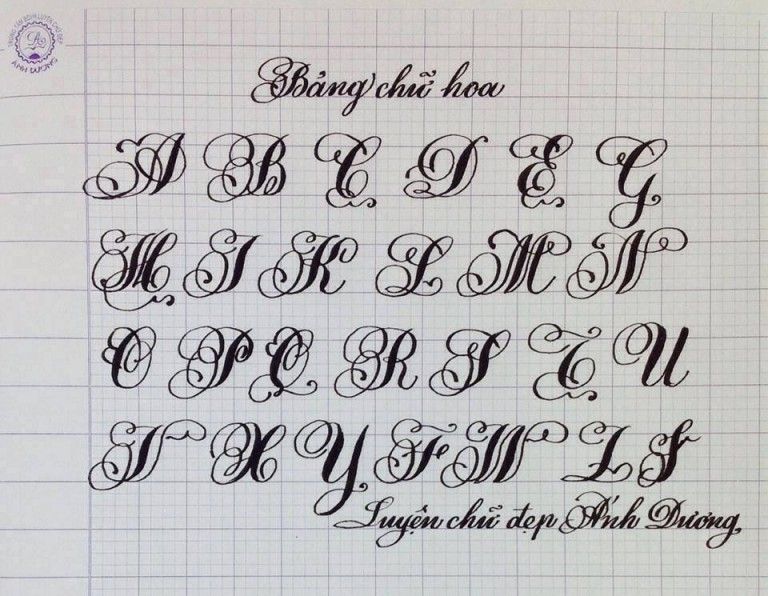 Bảng chữ hoa
A B C D E G
H I K L M N
O P Q R S T U
V X Y F W Z
Luyện chữ đẹp Ánh Dương
ÁNH DƯƠNG